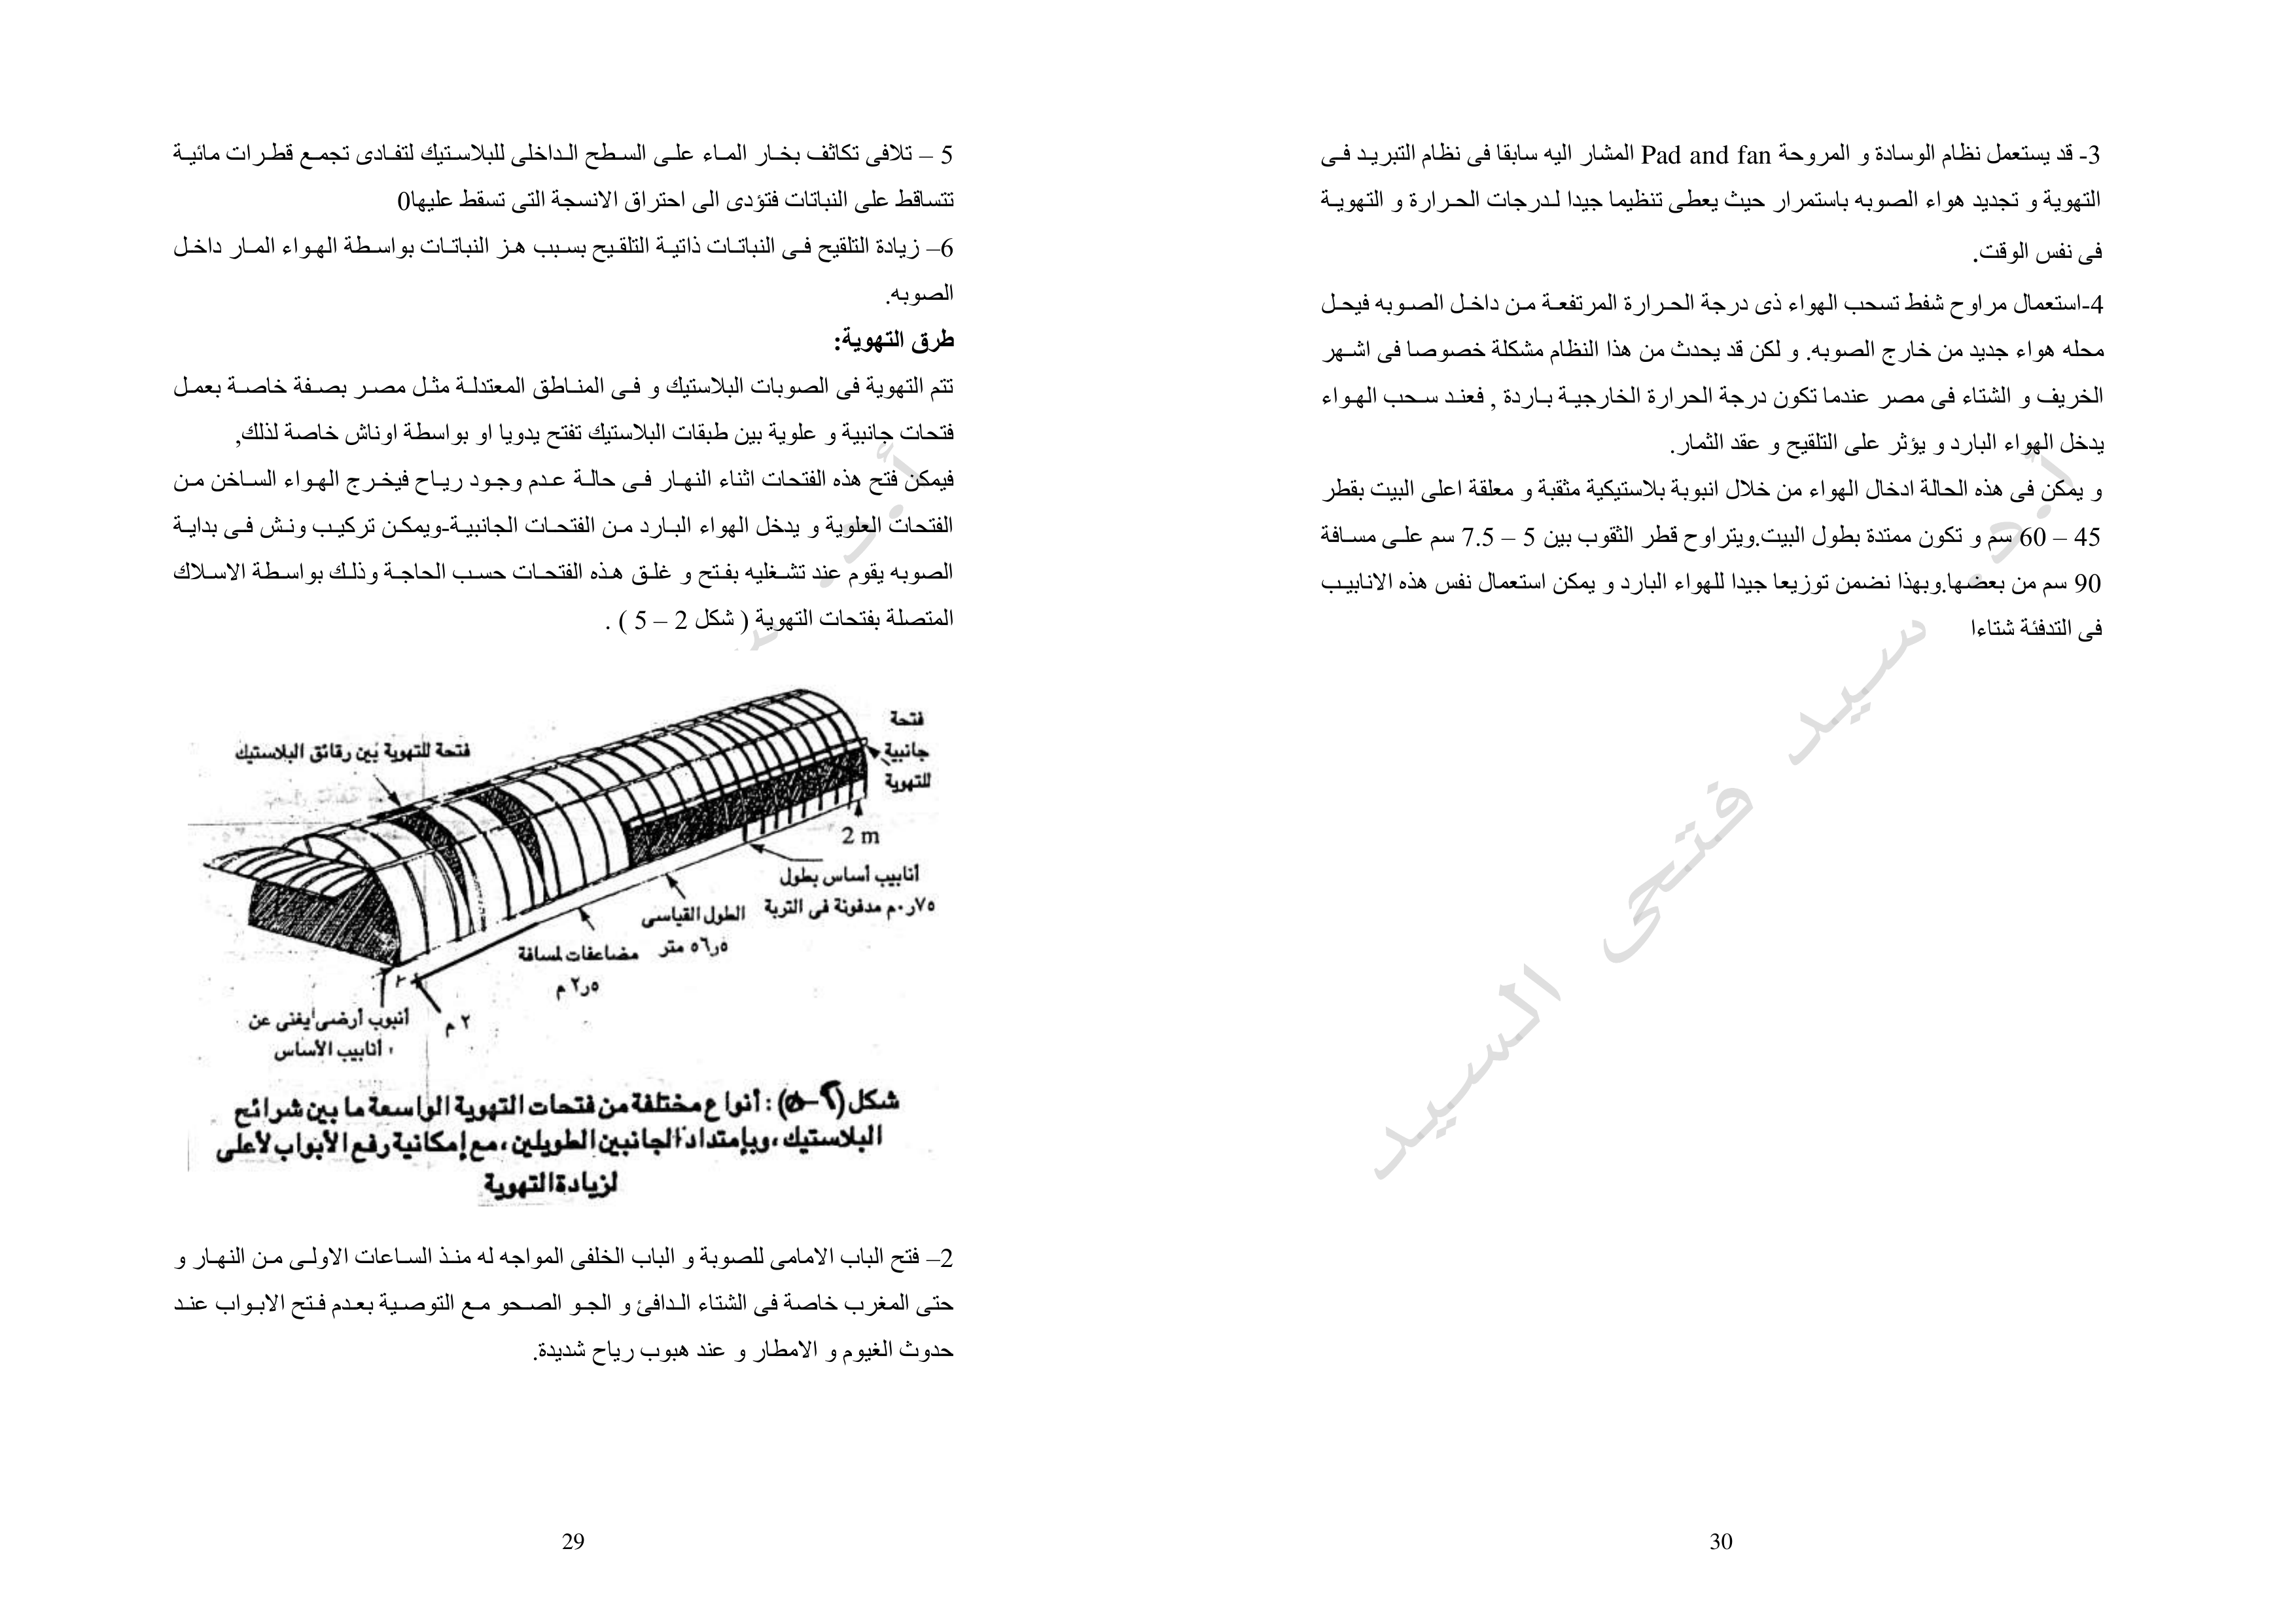 5 – تلافى تكاثف بخار الماء على السطح الداخلى للبلاستيك لتفادى تجمع قطرات مائية
تتساقط على النباتات فتؤدى الى احتراق الانسجة التى تسقط عليها0
6– زيادة التلقيح فى النباتات ذاتية التلقيح بسبب هز النباتات بواسطة الهواء المار داخل
الصوبه.
طرق التهوية:
تتم التهوية فى الصوبات البلاستيك و فى المناطق المعتدلة مثل مصر بصفة خاصة بعمل
فتحات جانبية و علوية بين طبقات البلاستيك تفتح يدويا او بواسطة اوناش خاصة لذلك,
فيمكن فتح هذه الفتحات اثناء النهار فى حالة عدم وجود رياح فيخرج الهواء الساخن من
الفتحات العلوية و يدخل الهواء البارد من الفتحات الجانبية-ويمكن تركيب ونش فى بداية
الصوبه يقوم عند تشغليه بفتح و غلق هذه الفتحات حسب الحاجة وذلك بواسطة الاسلاك
المتصلة بفتحات التهوية ( شكل 2 – 5 ) .
فتحة
جانبية
للتهوية
فتحة للتهوية بين رقائق البلاستيك
2 m
أنابيب أساس بطول
٠٫٧٥م مدفونة فى التربة
الطول القياسى
٥٦٫٥ متر
مضاعفات لمسافة
٢٫٥ م
٢
٢ م
أنبوب أرضى يغنى عن
أنابيب الأساس
شكل (٢-٥) : أنواع مختلفة من فتحات التهوية الواسعة ما بين شرائح
البلاستيك ، وبإمتداد الجانبين الطويلين ، مع إمكانية رفع الأبواب لأعلى
لزيادة التهوية
2– فتح الباب الامامى للصوبة و الباب الخلفى المواجه له منذ الساعات الاولى من النهار و
حتى المغرب خاصة فى الشتاء الدافئ و الجو الصحو مع التوصية بعدم فتح الابواب عند
حدوث الغيوم و الامطار و عند هبوب رياح شديدة.
29
3- قد يستعمل نظام الوسادة و المروحة Pad and fan المشار اليه سابقا فى نظام التبريد فى
التهوية و تجديد هواء الصوبه باستمرار حيث يعطى تنظيما جيدا لدرجات الحرارة و التهوية
فى نفس الوقت.
4-استعمال مراوح شفط تسحب الهواء ذى درجة الحرارة المرتفعة من داخل الصوبه فيحل
محله هواء جديد من خارج الصوبه. و لكن قد يحدث من هذا النظام مشكلة خصوصا فى اشهر
الخريف و الشتاء فى مصر عندما تكون درجة الحرارة الخارجية باردة , فعند سحب الهواء
يدخل الهواء البارد و يؤثر على التلقيح و عقد الثمار.
و يمكن فى هذه الحالة ادخال الهواء من خلال انبوبة بلاستيكية مثقبة و معلقة اعلى البيت بقطر
45 – 60 سم و تكون ممتدة بطول البيت.ويتراوح قطر الثقوب بين 5 – 7.5 سم على مسافة
90 سم من بعضها.وبهذا نضمن توزيعا جيدا للهواء البارد و يمكن استعمال نفس هذه الانابيب
فى التدفئة شتاءا
أ.د. سيد فتحى السيد
30